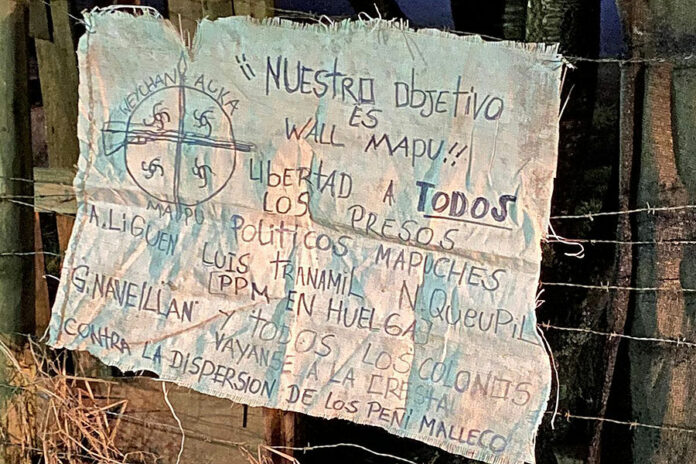 WEYCHAN AUKA
MAPU
¡¡NUESTRO OBJETIVO
ES
WALL MAPU!!
LIBERTAD A TODOS
LOS PRESOS
POLITICOS MAPUCHES
A. LIGUEN
LUIS TRANAMIL N. QUEUPIL
[PPM EN HUELGA]
G. NAVEILLAN Y TODOS LOS COLONOS
VAYANSE A LA CRESTA
CONTRA LA DISPERSION DE LOS PEÑI MALLECO